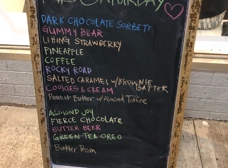 SATURDAY
DARK CHOCOLATE SORBET
GUMMY BEAR
LI HING STRAWBERRY
PINEAPPLE
COFFEE
ROCKY ROAD
SALTED CARAMEL w/BROWNIE BATTER
COOKIES & CREAM
Peanut Butter w/Almond Toffee
ALMOND JOY
FIERCE CHOCOLATE
BUTTER BEER
GREEN TEA OREO
Butter Rum